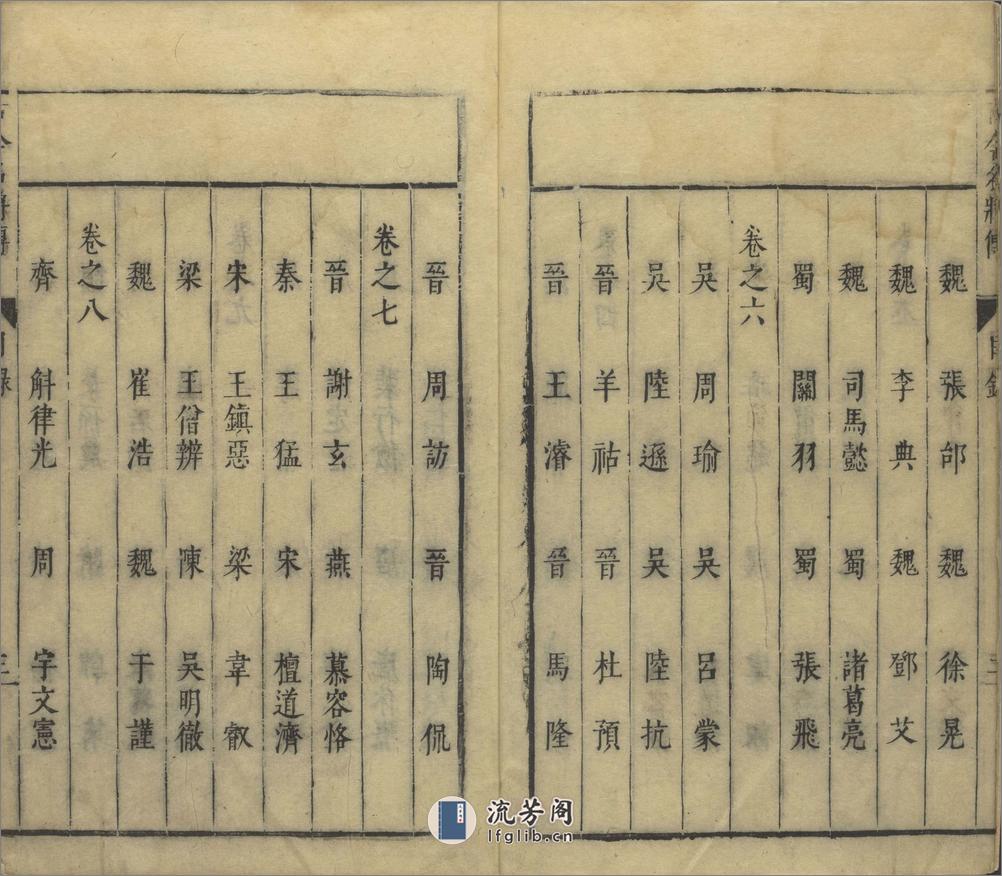 魏 張郃 魏 徐晃
魏 李典 魏 鄧艾
魏 司馬懿 蜀 諸葛亮
蜀 關羽 蜀 張飛
卷之六
吳 周瑜 吳 呂蒙
吳 陸遜 吳 陸抗
晉 羊祜 晉 杜預
晉 王濬 晉 馬隆
晉 周訪 晉 陶侃
卷之七
晉 謝玄 燕 慕容恪
秦 王猛 宋 檀道濟
宋 王鎮惡 梁 韋叡
梁 王僧辨 陳 吳明徹
魏 崔浩 魏 于謹
卷之八
齊 斛律光 周 宇文憲
目錄 三
流芳阁
lfglib.cn